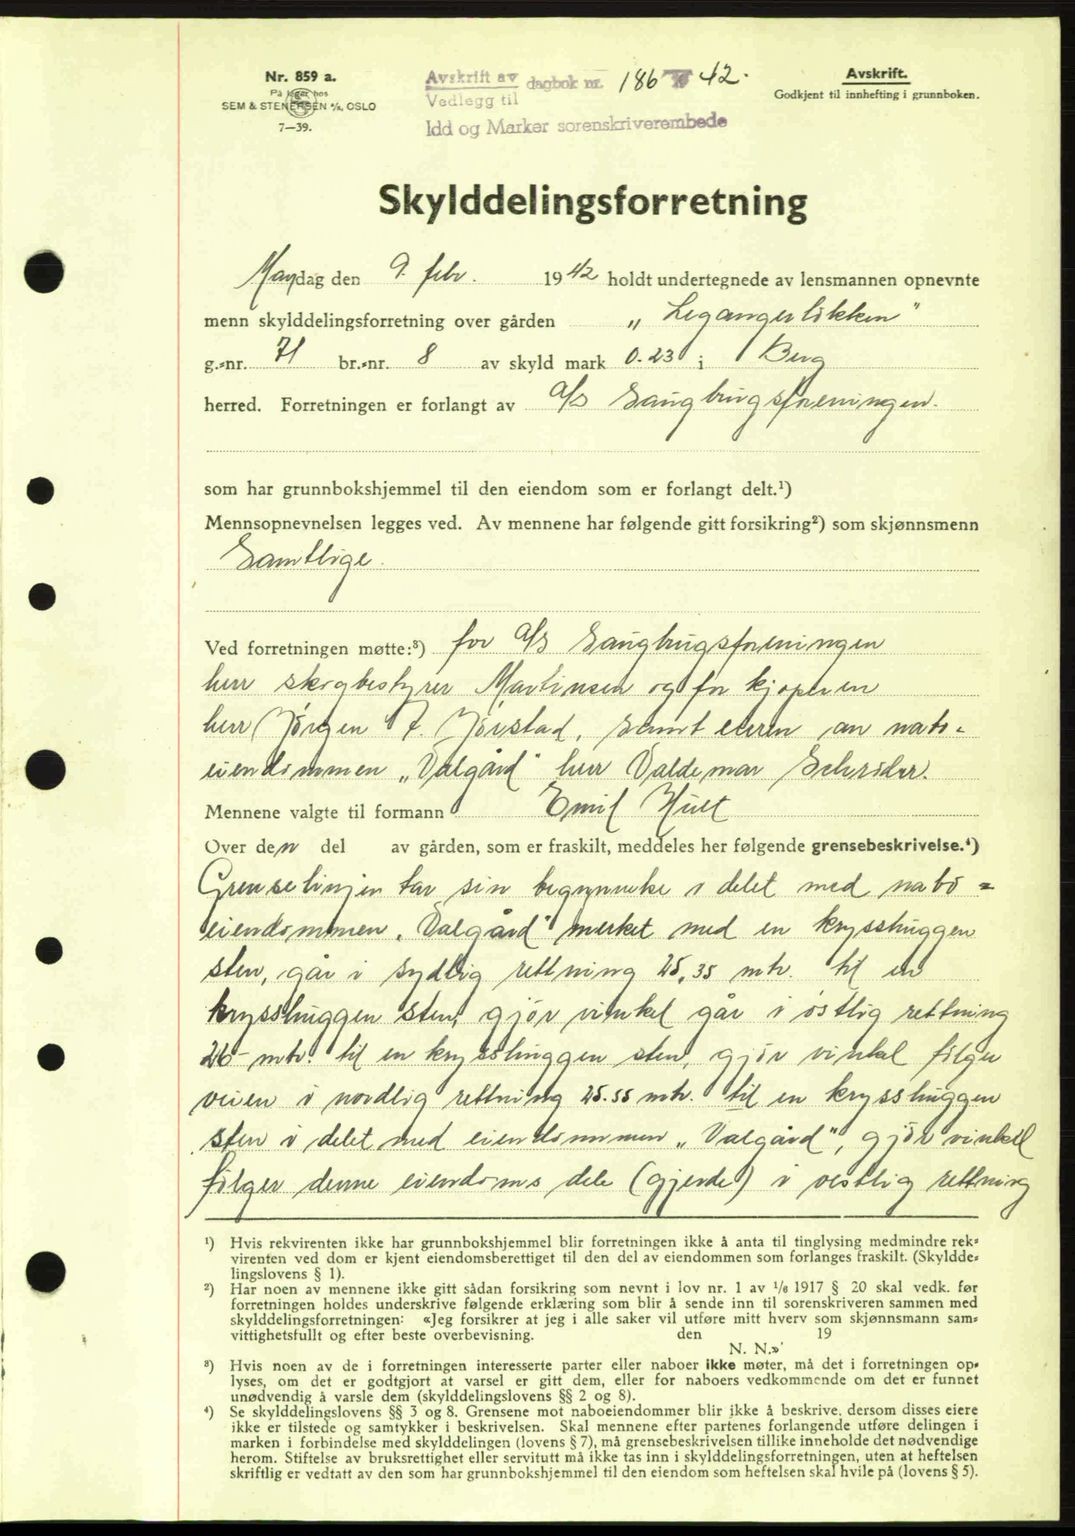 Nr. 859 a.
På lager hos
SEM & STENERSEN A/S, OSLO
7—39.
Avskrift av dagbok nr. 186 19 42.
Vedlegg til
Idd og Marker sorenskriverembede
Avskrift.
Godkjent til innhefting i grunnboken.
Skylddelingsforretning
Mandag den 9. febr. 1942 holdt undertegnede av lensmannen opnevnte
menn skylddelingsforretning over gården „Legangerlökken"
g.-nr. 71 br.-nr. 8 av skyld mark 0.23 i Berg
herred. Forretningen er forlangt av A/S Saugbrugsforeningen.
som har grunnbokshjemmel til den eiendom som er forlangt delt.¹)
Mennsopnevnelsen legges ved. Av mennene har følgende gitt forsikring²) som skjønnsmenn
Samtlige.
Ved forretningen møtte:³) for A/S Saugbrugsforeningen
herr skogbestyrer Martinsen og for kjøperen
herr Jörgen F. Jörstad, samt eieren av nabo-
eiendommen „Valgård" herr Valdemar Schröder.
Mennene valgte til formann Emil Hult
Over den del av gården, som er fraskilt, meddeles her følgende grensebeskrivelse.⁴)
Grenselinjen tar sin begynnelse i delet med nabo-
eiendommen „Valgård" merket med en krysshuggen
sten, går i sydlig rettning 25,35 mtr. til en
krysshuggen sten, gjör vinkel går i östlig rettning
26- mtr. til en krysshuggen sten, gjör vinkel fölger
veien i nordlig rettning 25.55 mtr. til en krysshuggen
sten i delet med eiendommen „Valgård", gjör vinkel
fölger denne eiendoms dele (gjerde) i vestlig rettning
¹) Hvis rekvirenten ikke har grunnbokshjemmel blir forretningen ikke å anta til tinglysing medmindre rek-
virenten ved dom er kjent eiendomsberettiget til den del av eiendommen som forlanges fraskilt. (Skyldde-
lingslovens § 1).
²) Har noen av mennene ikke gitt sådan forsikring som nevnt i lov nr. 1 av 1/6 1917 § 20 skal vedk. før
forretningen holdes underskrive følgende erklæring som blir å sende inn til sorenskriveren sammen med
skylddelingsforretningen: «Jeg forsikrer at jeg i alle saker vil utføre mitt hverv som skjønnsmann sam-
vittighetsfullt og efter beste overbevisning. den 19
N. N.»
³) Hvis noen av de i forretningen interesserte parter eller naboer ikke møter, må det i forretningen op-
lyses, om det er godtgjort at varsel er gitt dem, eller for naboers vedkommende om det er funnet
unødvendig å varsle dem (skylddelingslovens §§ 2 og 8).
⁴) Se skylddelingslovens §§ 3 og 8. Grensene mot naboeiendommer blir ikke å beskrive, dersom disses eiere
ikke er tilstede og samtykker i beskrivelsen. Skal mennene efter partenes forlangende utføre delingen i
marken i forbindelse med skylddelingen (lovens § 7), må grensebeskrivelsen tillike inneholde det nødvendige
herom. Stiftelse av bruksrettighet eller servitutt må ikke tas inn i skylddelingsforretningen, uten at heftelsen
skriftlig er vedtatt av den som har grunnbokshjemmel til den eiendom som heftelsen skal hvile på (lovens § 5).